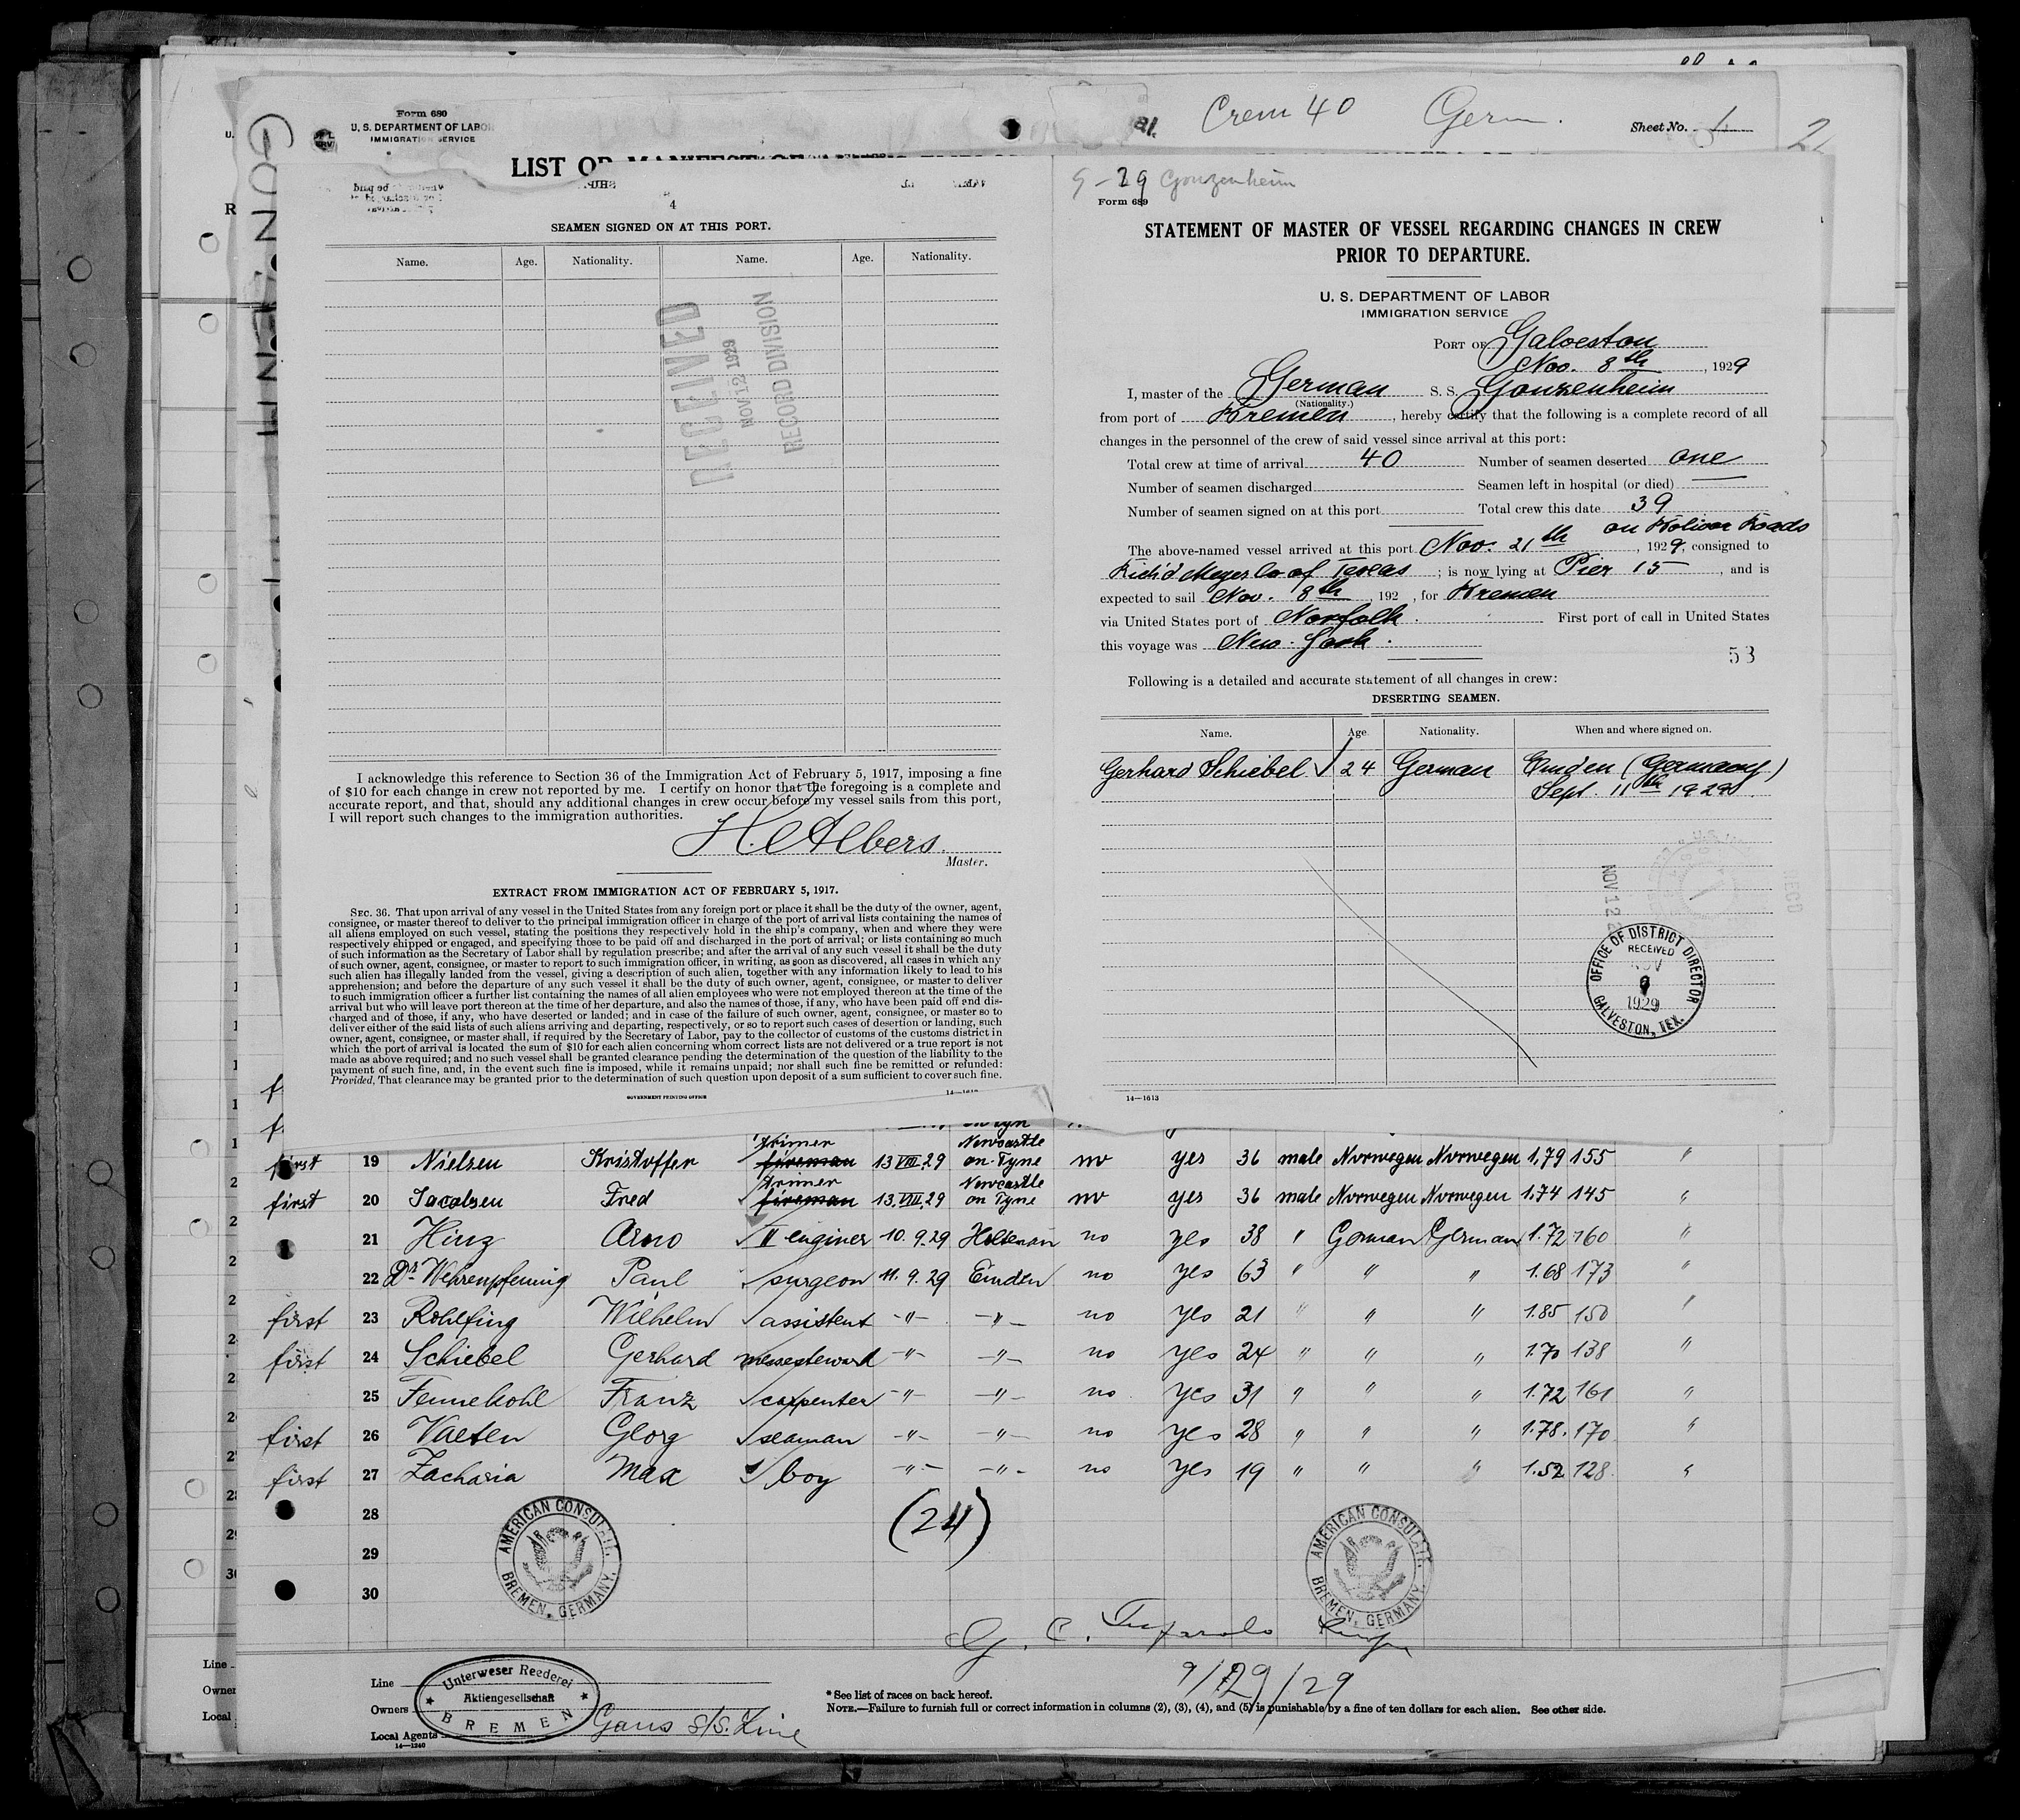 Form 680
U. S. DEPARTMENT OF LABOR
IMMIGRATION SERVICE
Crew 40 Germ.
Sheet No.
2
LIST OR MANIFEST OF
GONZENH
4
SEAMEN SIGNED ON AT THIS PORT.
Name. Age. Nationality. Name. Age. Nationality.
RECEIVED
NOV 12 1929
RECORD DIVISION
I acknowledge this reference to Section 36 of the Immigration Act of February 5, 1917, imposing a fine
of $10 for each change in crew not reported by me. I certify on honor that the foregoing is a complete and
accurate report, and that, should any additional changes in crew occur before my vessel sails from this port,
I will report such changes to the immigration authorities.
H. Albers
Master.
EXTRACT FROM IMMIGRATION ACT OF FEBRUARY 5, 1917.
SEC. 36. That upon arrival of any vessel in the United States from any foreign port or place it shall be the duty of the owner, agent,
consignee, or master thereof to deliver to the principal immigration officer in charge of the port of arrival lists containing the names of
all aliens employed on such vessel, stating the positions they respectively hold in the ship's company, when and where they were
respectively shipped or engaged, and specifying those to be paid off and discharged in the port of arrival; or lists containing so much
of such information as the Secretary of Labor shall by regulation prescribe; and after the arrival of any such vessel it shall be the duty
of such owner, agent, consignee, or master to report to such immigration officer, in writing, as soon as discovered, all cases in which any
such alien has illegally landed from the vessel, giving a description of such alien, together with any information likely to lead to his
apprehension; and before the departure of any such vessel it shall be the duty of such owner, agent, consignee, or master to deliver
to such immigration officer a further list containing the names of all alien employees who were not employed thereon at the time of the
arrival but who will leave port thereon at the time of her departure, and also the names of those, if any, who have been paid off and dis-
charged and of those, if any, who have deserted or landed; and in case of the failure of such owner, agent, consignee, or master so to
deliver either of the said lists of such aliens arriving and departing, respectively, or so to report such cases of desertion or landing, such
owner, agent, consignee, or master shall, if required by the Secretary of Labor, pay to the collector of customs of the customs district in
which the port of arrival is located the sum of $10 for each alien concerning whom correct lists are not delivered or a true report is not
made as above required; and no such vessel shall be granted clearance pending the determination of the question of the liability to the
payment of such fine, and, in the event such fine is imposed, while it remains unpaid; nor shall such fine be remitted or refunded:
Provided, That clearance may be granted prior to the determination of such question upon deposit of a sum sufficient to cover such fine.
GOVERNMENT PRINTING OFFICE
9-29 Gonzenheim
Form 689
STATEMENT OF MASTER OF VESSEL REGARDING CHANGES IN CREW
PRIOR TO DEPARTURE.
U. S. DEPARTMENT OF LABOR
IMMIGRATION SERVICE
PORT OF Galveston
Nov. 8th, 1929
I, master of the German S. S. Gonzenheim
(Nationality.)
from port of Bremen, hereby certify that the following is a complete record of all
changes in the personnel of the crew of said vessel since arrival at this port:
Total crew at time of arrival 40 Number of seamen deserted one
Number of seamen discharged Seamen left in hospital (or died) —
Number of seamen signed on at this port Total crew this date 39
on Bolivar Roads
The above-named vessel arrived at this port Nov. 21th, 1929, consigned to
Rich'd Meyer Co of Texas; is now lying at Pier 15, and is
expected to sail Nov. 8th, 192 , for Bremen
via United States port of Norfolk. First port of call in United States
this voyage was New-York.
53
Following is a detailed and accurate statement of all changes in crew:
DESERTING SEAMEN.
Name. Age. Nationality. When and where signed on.
Gerhard Schiebel √ 24 German Emden (Germany)
Sept. 11th 1929.
NOV 12
RECD
OFFICE OF DISTRICT DIRECTOR
RECEIVED
NOV
1929
GALVESTON, TEX.
14—1613
first 19 Nielsen Kristoffer trimer fireman 13 VIII.29 Newcastle on-Tyne no yes 36 male Norwegen Norwegen 1,79 155 "
first 20 Jacobsen Fred √ trimer fireman 13.VIII.29 Newcastle on Tyne no yes 36 male Norwegen Norwegen 1.74 145 "
21 Hinz Arno √ II enginer 10.9.29 Holtenau no yes 38 " German German 1.72 160 "
22 Dr. Wehrenpfennig Paul √ surgeon 11.9.29 Emden no yes 63 " " " 1.68 173 "
first 23 Rohlfing Wilhelm √ assistent -"- -"- no yes 21 " " " 1.85 150 "
first 24 Schiebel Gerhard messesteward -"- -"- no yes 24 " " " 1.70 138 "
25 Fennekohl Franz √ carpenter -"- -"- no yes 31 " " " 1.72 161 "
first 26 Vaeten Georg √ seaman -"- -"- no yes 28 " " " 1.78. 170 "
first 27 Zacharia Max √ boy -"- -"- no yes 19 " " " 1.52 128 "
28
29
30
(24)
AMERICAN CONSULATE,
BREMEN, GERMANY.
AMERICAN CONSULATE,
BREMEN, GERMANY.
G. C.
9/29/29
Line
Owners
Local Agents
14—1240
Unterweser Reederei
Aktiengesellschaft
BREMEN
Gans S/S. Line
* See list of races on back hereof.
NOTE.—Failure to furnish full or correct information in columns (2), (3), (4), and (5) is punishable by a fine of ten dollars for each alien. See other side.